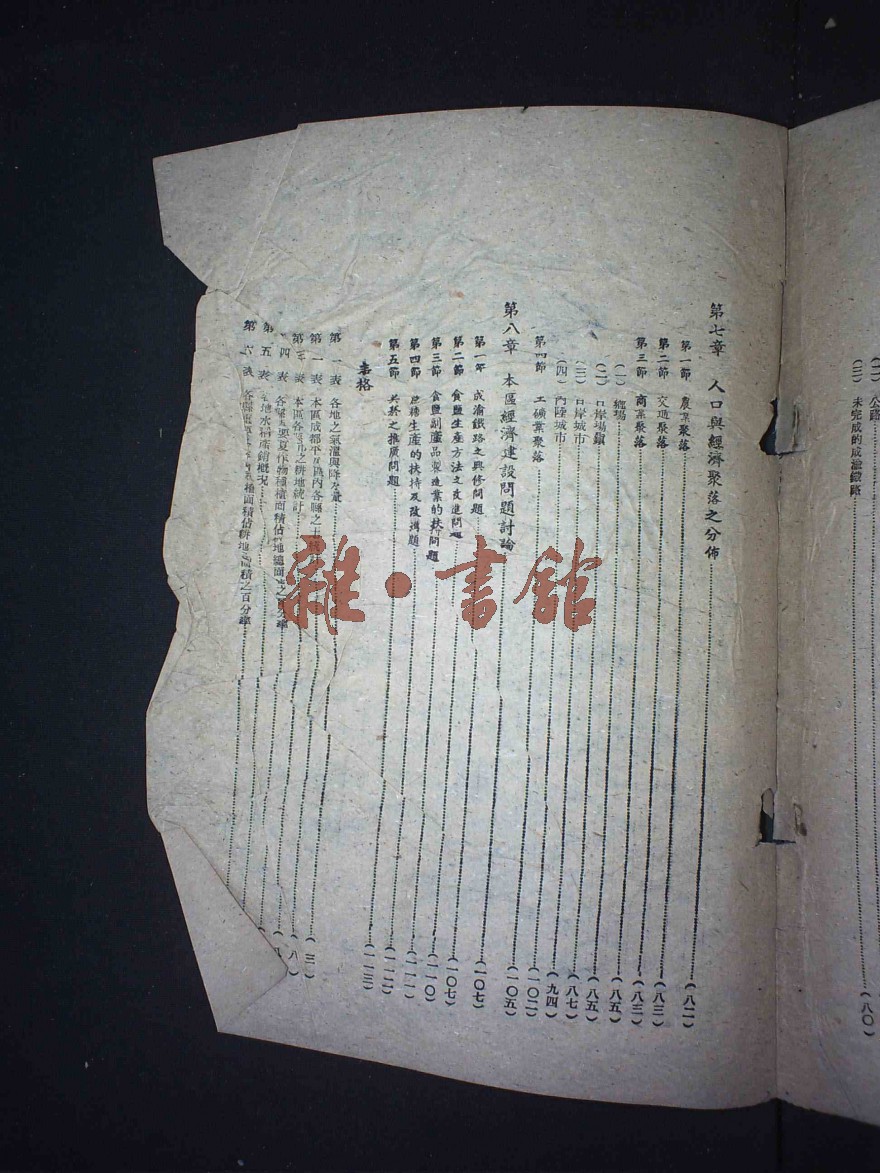 (二)公路
(三)未完成的成渝鐵路……(八〇)
第七章 人口與經濟聚落之分佈……(八二)
第一節 農業聚落……(八二)
第二節 交通聚落……(八三)
第三節 商業聚落……(八三)
(一)鄉場……(八五)
(二)口岸場鎮……(八五)
(三)口岸城市……(八七)
(四)內陸城市……(九四)
第四節 工礦業聚落……(一〇二)
第八章 本區經濟建設問題討論……(一〇五)
第一節 成渝鐵路之興修問題……(一〇七)
第二節 食鹽生產方法之改進問題……(一〇七)
第三節 食鹽副產品製造業的扶持問題……(一一〇)
第四節 生產的扶持及改進問題……(一一一)
第五節 之推廣問題……(一一二)
表格……(一一三)
第一表 各地之氣溫與降雨量……(三)
第二表 本區成都平原區內各縣之
第三表 本區各縣之耕地統計……(八)
四表 各縣主要夏作物種植面積佔耕地總面積之百分率
第五表 各地水稻產銷概況
第六表 種植面積佔耕地面積之百分率
雜·書館